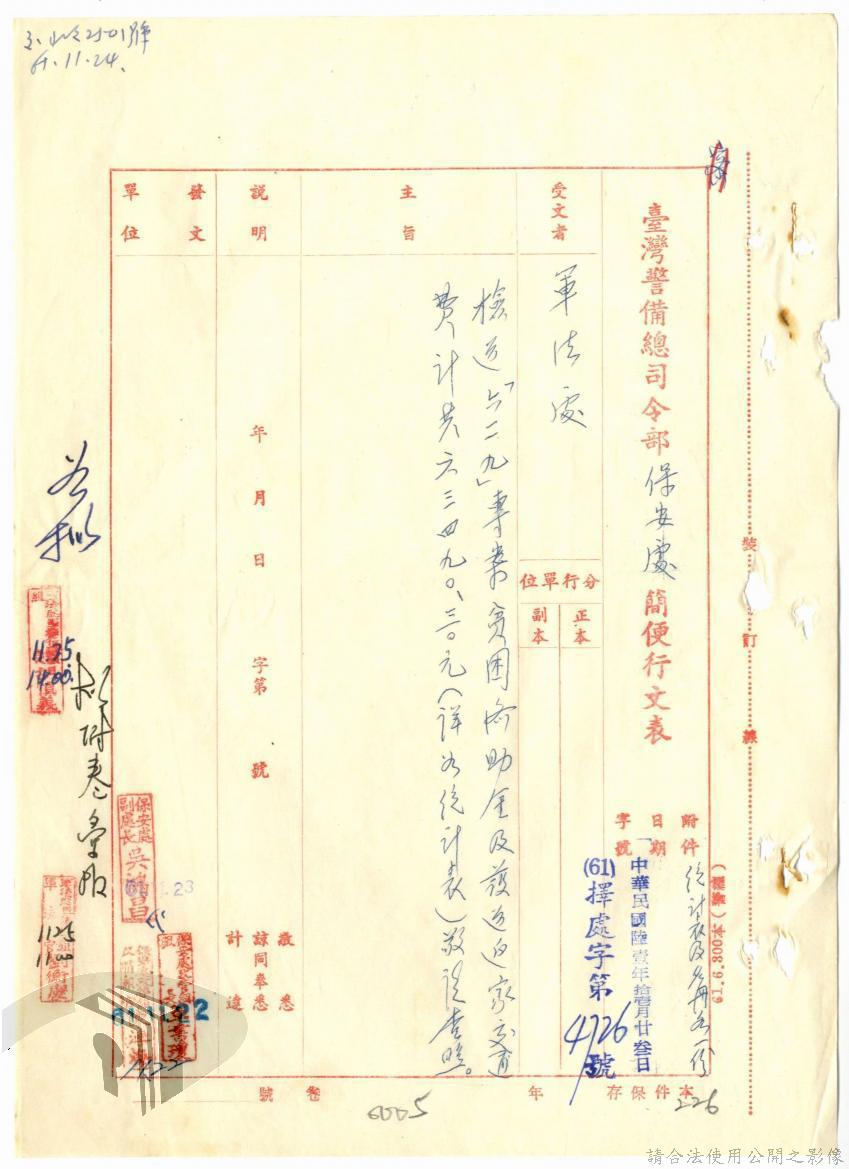 61.11.24.
臺灣警備總司令部保安處簡便行文表
附件
統計表及名冊各一份
日期
中華民國陸壹年拾壹月廿叁日
字號
(61)擇處字第4726號
(標準)61.6.800本
受文者
軍法處
分行單位
正本
副本
主旨
檢送「六二九」專案貧困濟助金及護送返家交通
費計共六三四九〇.三〇元(詳如統計表)敬請查照。
說明
年 月 日 字第 號
敬悉
諒同奉悉
計達
發文
單位
保安處
副處長
吳鴻昌
61.11.23
61.11.22
1122
如擬
11.25
14.00.
擬附卷彙報
1125
1100
裝 訂 線
本件保存 年 卷 號
226
6005
請合法使用公開之影像